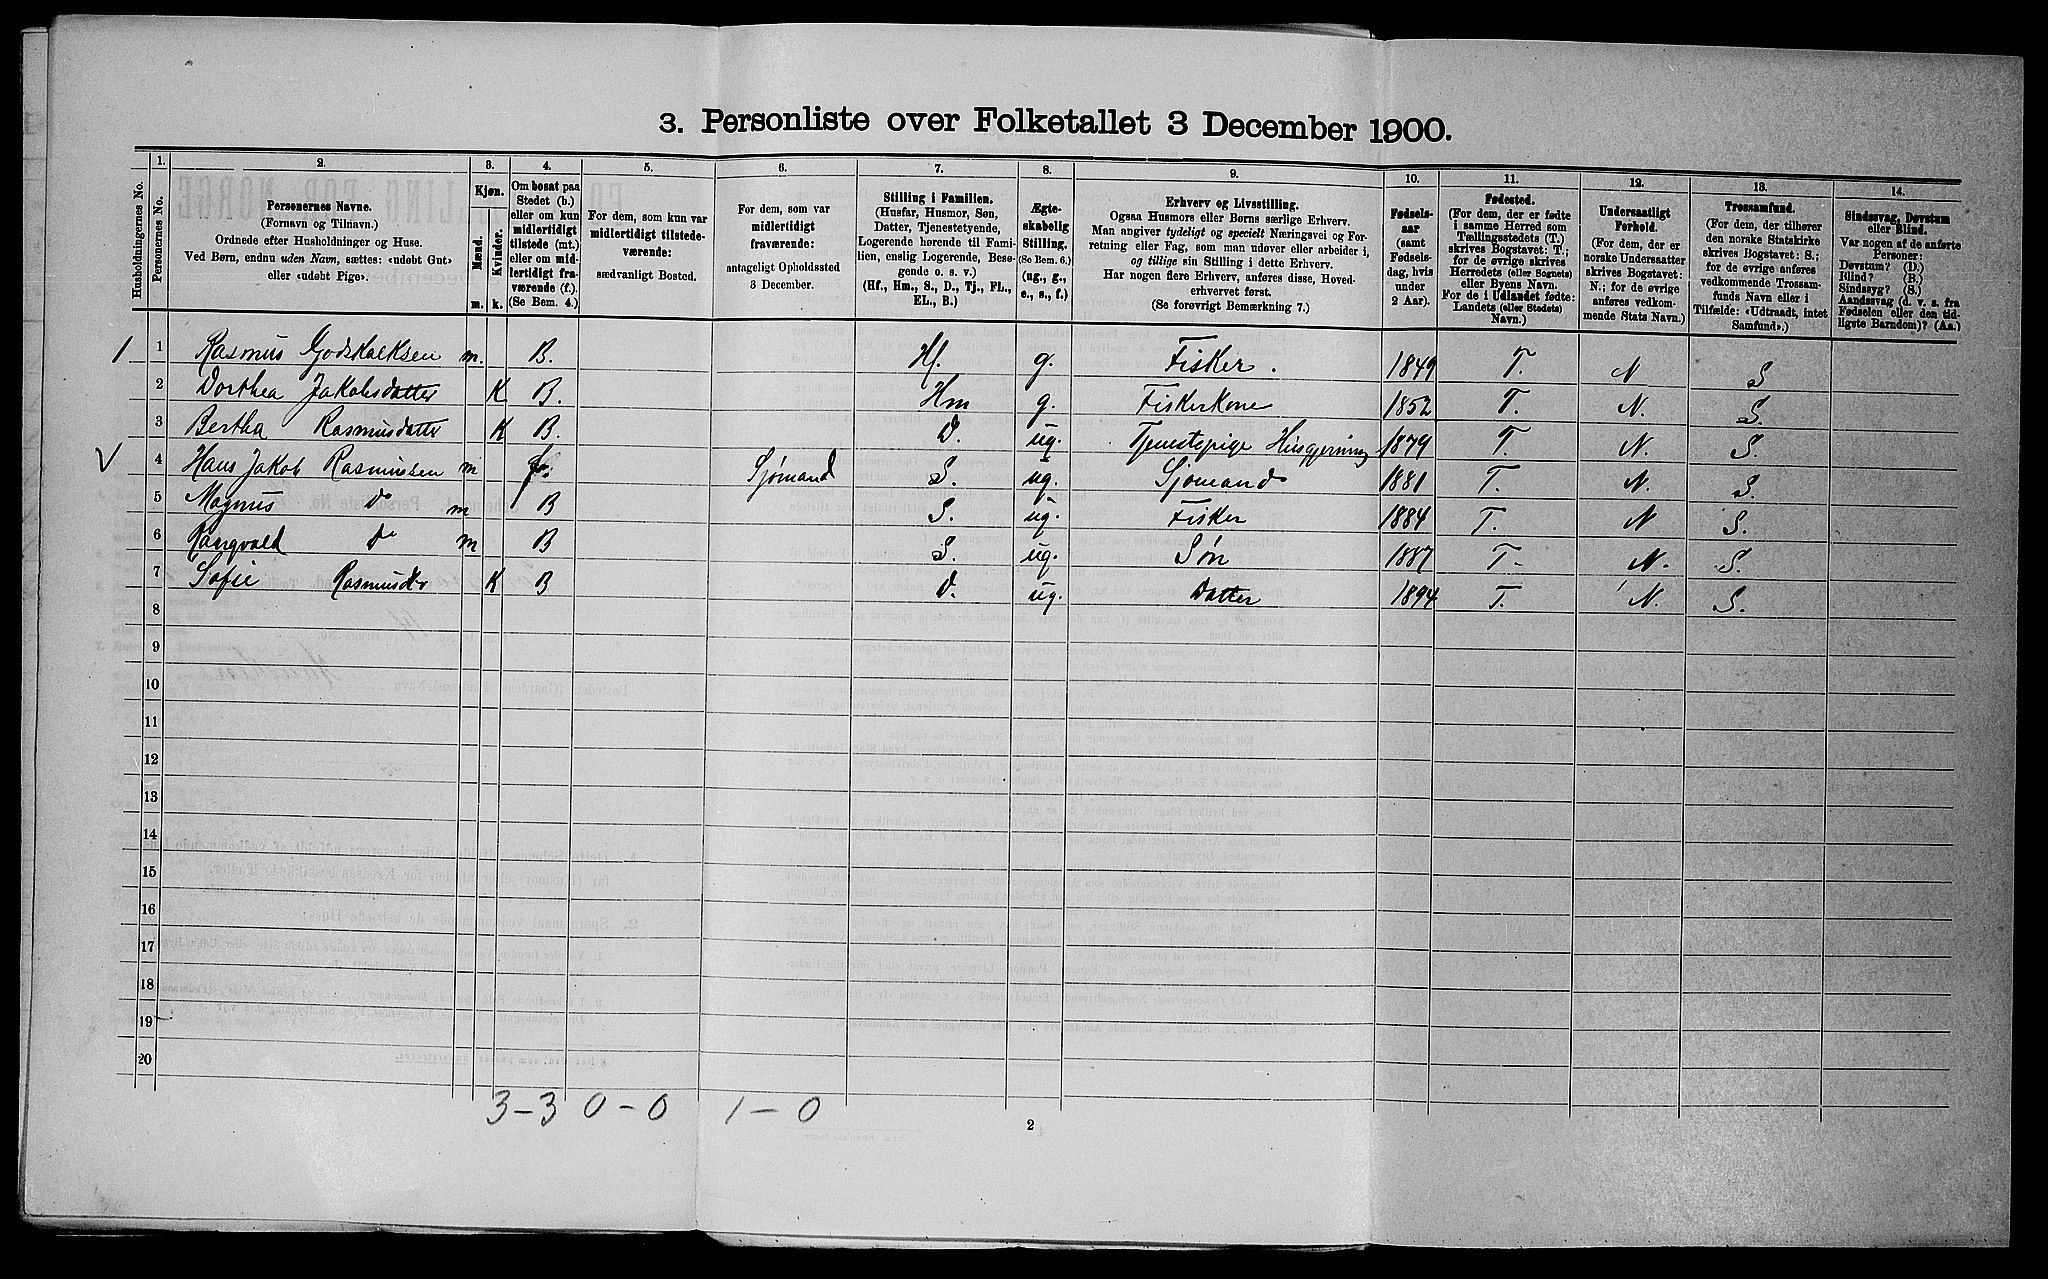 3. Personliste over Folketallet 3 December 1900.
Husholdningernes No.
1.
Personernes No.
2.
Personernes Navne.
(Fornavn og Tilnavn.)
Ordnede efter Husholdninger og Huse.
Ved Børn, endnu uden Navn, sættes: «udøbt Gut»
eller «udøbt Pige».
3.
Kjøn.
Mænd.
Kvinder.
m. k.
4.
Om bosat paa
Stedet (b.)
eller om kun
midlertidigt
tilstede (mt.)
eller om mid-
lertidigt fra-
værende (f.).
(Se Bem. 4.)
5.
For dem, som kun var
midlertidigt tilstede-
værende:
sædvanligt Bosted.
6.
For dem, som var
midlertidigt
fraværende:
antageligt Opholdssted
3 December.
7.
Stilling i Familien.
(Husfar, Husmor, Søn,
Datter, Tjenestetyende,
Logerende hørende til Fami-
lien, enslig Logerende, Besø-
gende o. s. v.)
(Hf., Hm., S., D., Tj., FL.,
EL., B.)
8.
Ægte-
skabelig
Stilling.
(Se Bem. 6.)
(ug., g.,
e., s., f.)
9.
Erhverv og Livsstilling.
Ogsaa Husmors eller Børns særlige Erhverv.
Man angiver tydeligt og specielt Næringsvei og For-
retning eller Fag, som man udøver eller arbeider i,
og tillige sin Stilling i dette Erhverv.
Har nogen flere Erhverv, anføres disse, Hoved-
erhvervet først.
(Se forøvrigt Bemærkning 7.)
10.
Fødsels-
aar
(samt
Fødsels-
dag, hvis
under
2 Aar).
11.
Fødested.
(For dem, der er fødte
i samme Herred som
Tællingsstedets (T.)
skrives Bogstavet: T.;
for de øvrige skrives
Herredets (eller Sognets)
eller Byens Navn.
For de i Udlandet fødte:
Landets (eller Stedets)
Navn.)
12.
Undersaatligt
Forhold.
(For dem, der er
norske Undersaatter
skrives Bogstavet:
N.; for de øvrige
anføres vedkom-
mende Stats Navn.)
13.
Trossamfund.
(For dem, der tilhører
den norske Statskirke
skrives Bogstavet: S.;
for de øvrige anføres
vedkommende Trossam-
funds Navn eller i
Tilfælde: «Udtraadt, intet
Samfund».)
14.
Sindssvag, Døvstum
eller Blind.
Var nogen af de anførte
Personer:
Døvstum? (D.)
Blind? (B.)
Sindssyg? (S.)
Aandssvag (d. v. s. fra
Fødselen eller den tid-
ligste Barndom)? (Aa.)
1 1 Rasmus Godskalksen m. B. Hf. g. Fisker. 1849 T. N S
2 Dorthea Jakobsdatter K B. Hm g. Fiskerkone 1852 T. N. S.
3 Bertha Rasmusdatter K B. D. ug. Tjenestepige Husgjerning 1879 T. N. S.
V 4 Hans Jakob Rasmussen m f. Sjømand S. ug. Sjømand 1881 T. N. S.
5 Magnus Do m B S. ug. Fisker 1884 T. N S.
6 Rangvald Do m B S. ug. Søn 1887 T. N. S.
7 Sofie Rasmusdtr K B D. ug. Datter 1894 T. N. S.
8
9
10
11
12
13
14
15
16
17
18
19
20
3-3 0-0 1-0
2